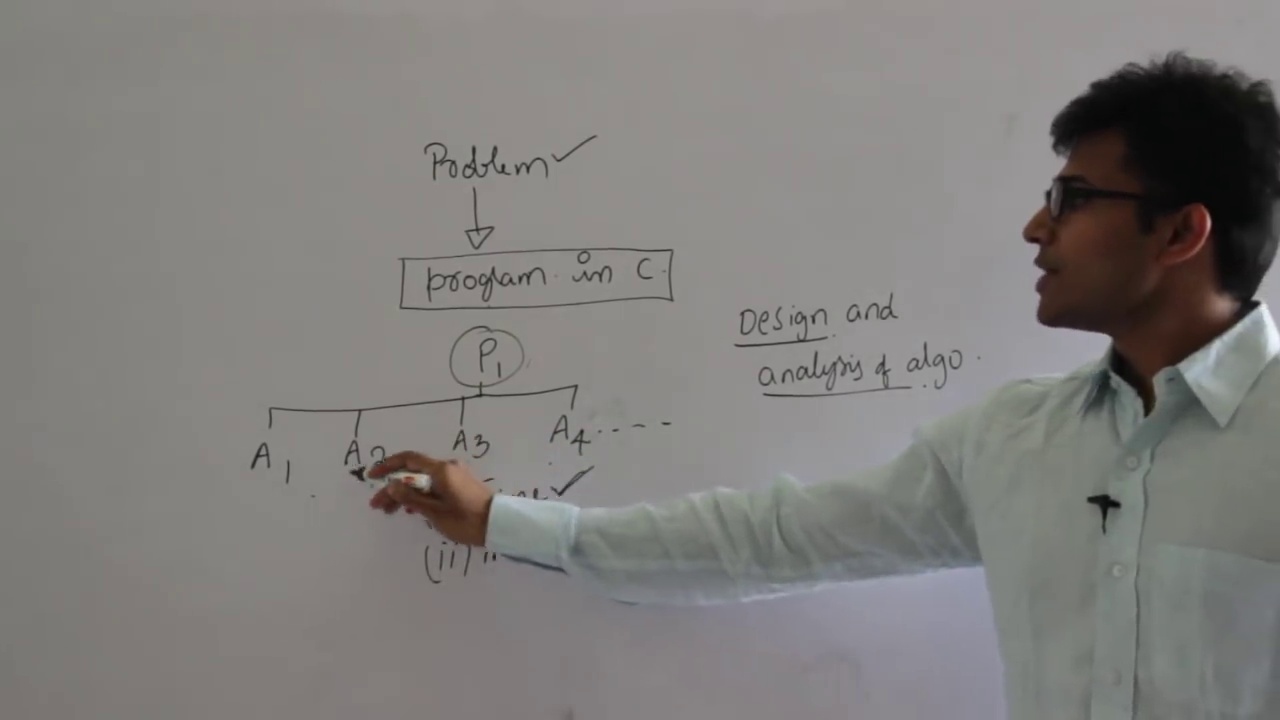 Problem ✓
program in C.
P1
A1 A2 A3 A4 .----
(ii)
Design and
analysis of algo.